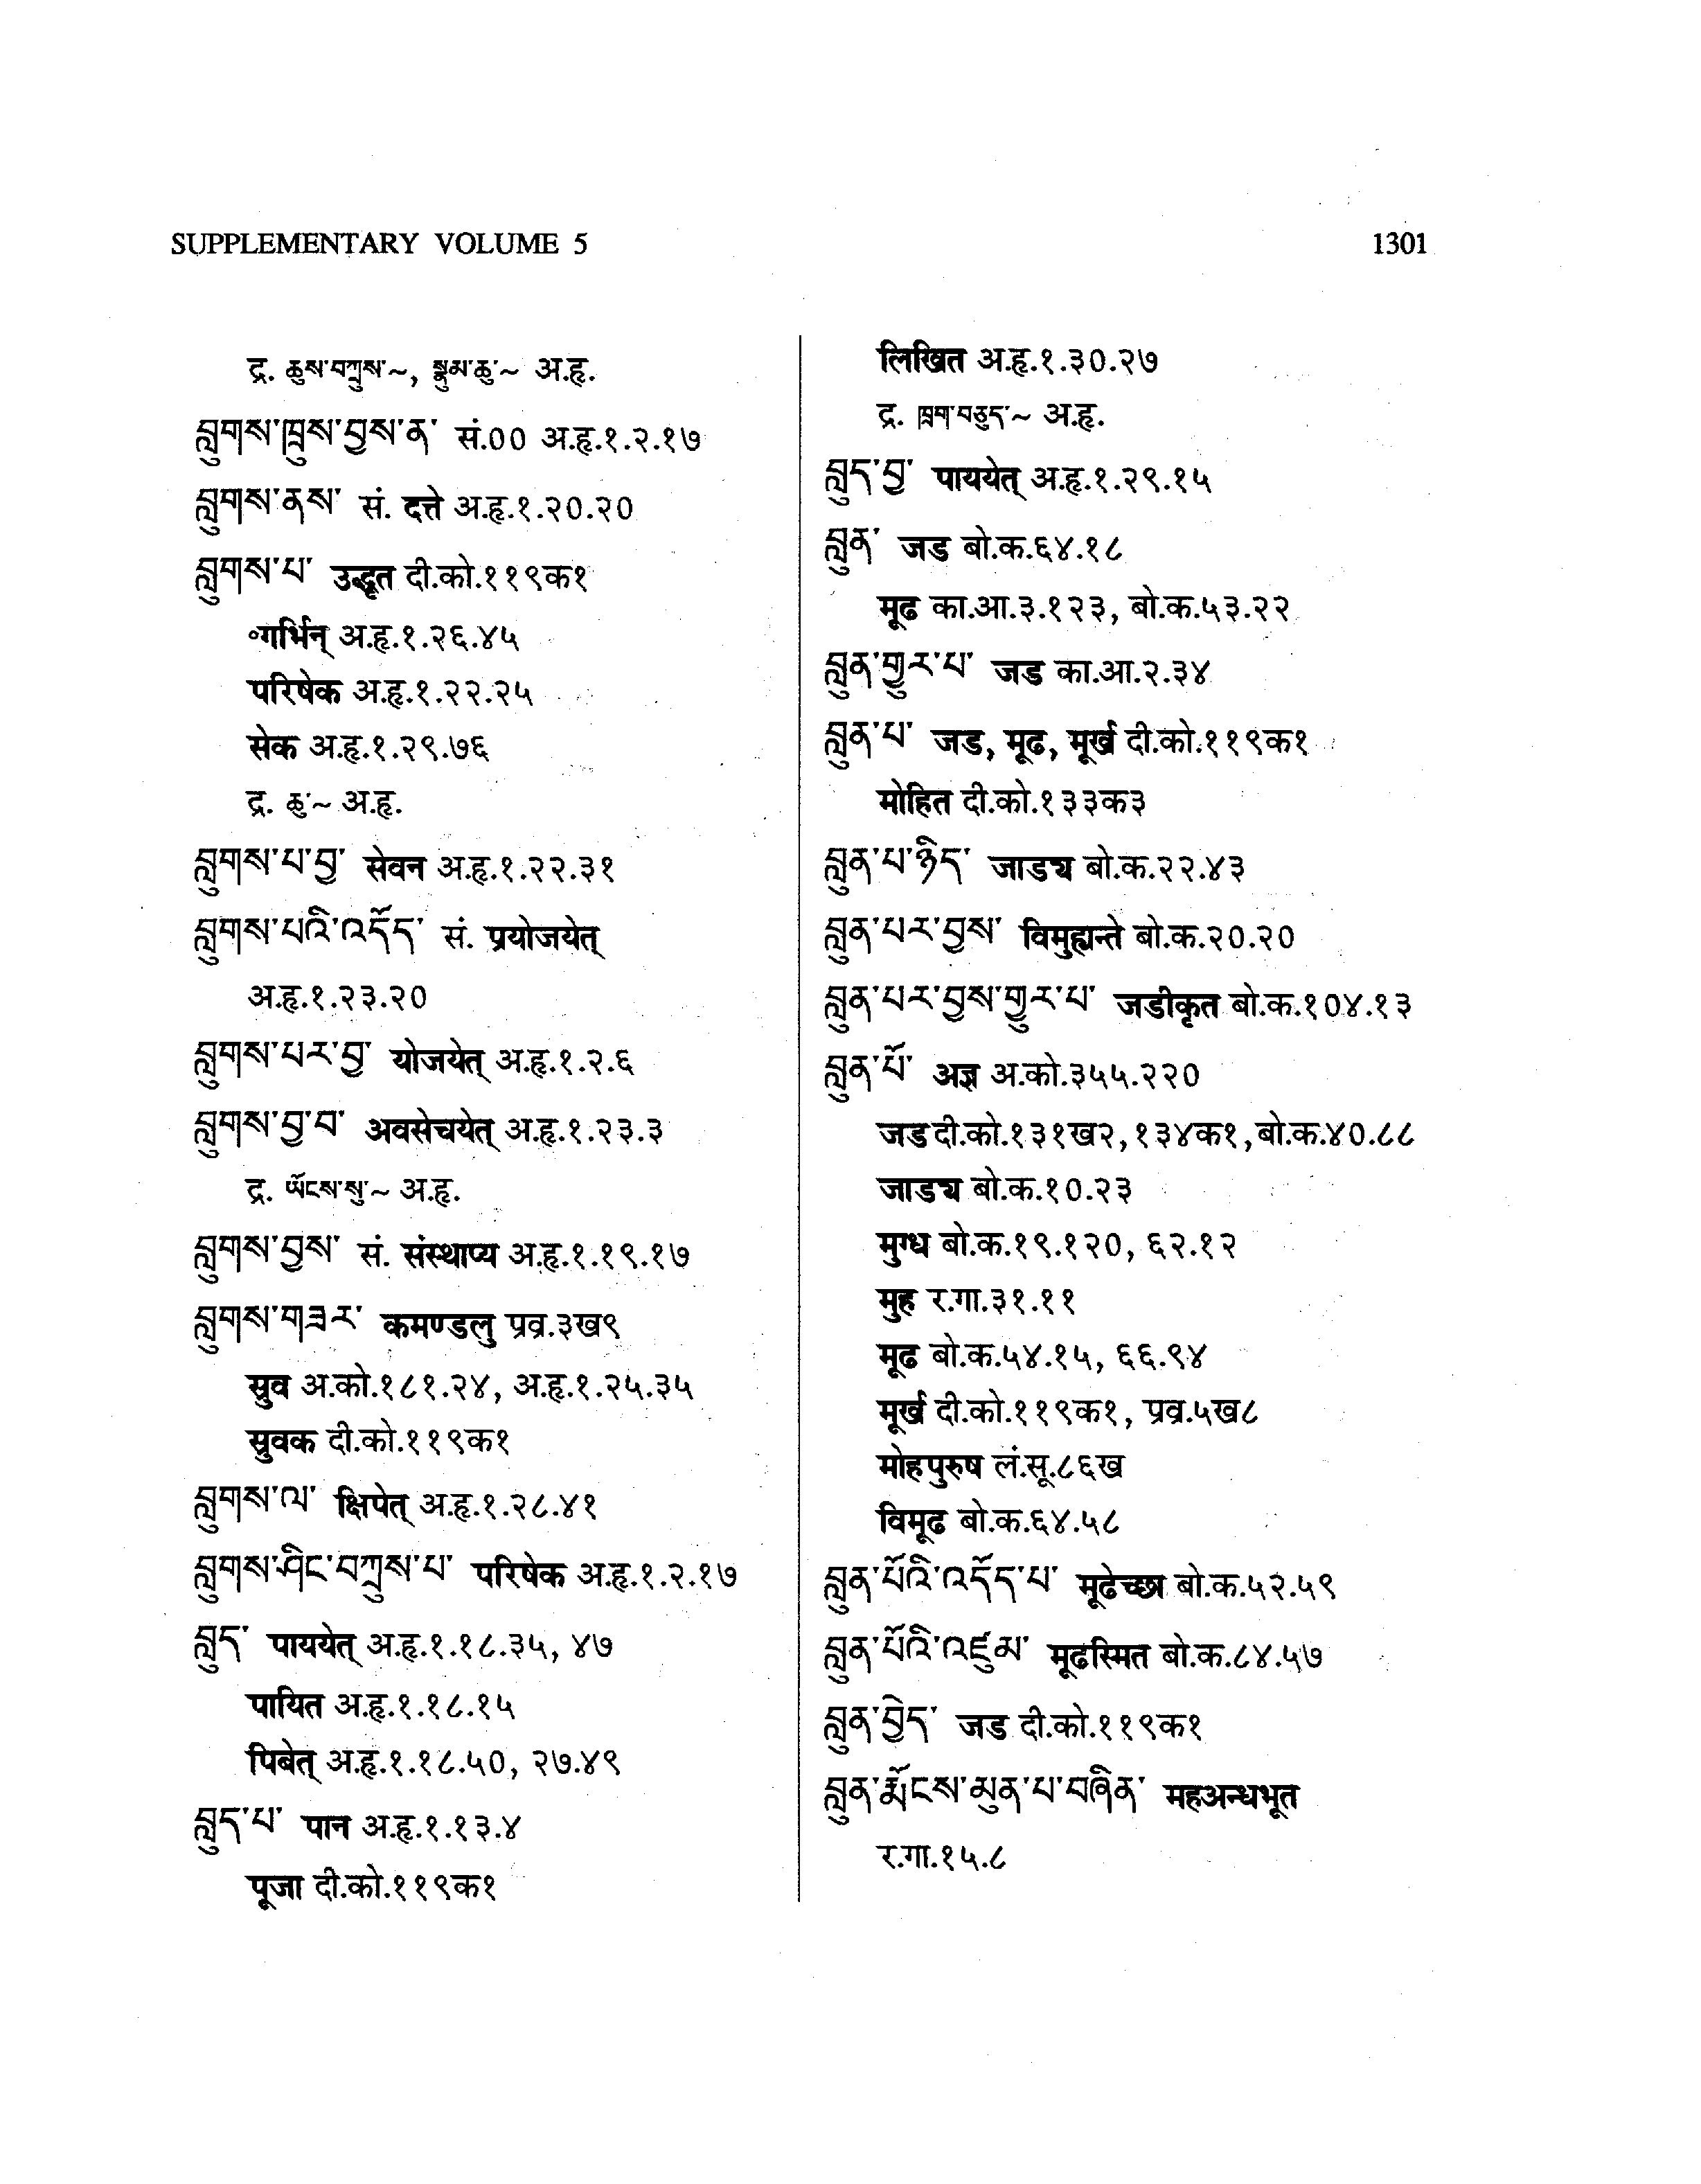 SUPPLEMENTARY VOLUME 5
1301
द्र. ཆུས་བཀྲུས་~, སྣུམ་ཆུ་~ अ.हृ.
བླུགས་ཁྲུས་བྱས་ན་ सं.०० अ.हृ.१.२.१७
བླུགས་ནས་ सं. दत्ते अ.हृ.१.२०.२०
བླུགས་པ་ उद्धृत दी.को.११९क१
॰गर्भिन् अ.हृ.१.२६.४५
परिषेक अ.हृ.१.२२.२५
सेक अ.हृ.१.२९.७६
द्र. ཆུ་~ अ.हृ.
བླུགས་པ་བྱ་ सेवन अ.हृ.१.२२.३१
བླུགས་པའི་འདོད་ सं. प्रयोजयेत्
अ.हृ.१.२३.२०
བླུགས་པར་བྱ་ योजयेत् अ.हृ.१.२.६
བླུགས་བྱ་བ་ अवसेचयेत् अ.हृ.१.२३.३
द्र. ཡོངས་སུ་~ अ.हृ.
བླུགས་བྱས་ सं. संस्थाप्य अ.हृ.१.१९.१७
བླུགས་གཟར་ कमण्डलु प्रव्र.३ख९
स्रुव अ.को.१८१.२४, अ.हृ.१.२५.३५
स्रुवक दी.को.११९क१
བླུགས་ལ་ क्षिपेत् अ.हृ.१.२८.४१
བླུགས་ཤིང་བཀྲུས་པ་ परिषेक अ.हृ.१.२.१७
བླུད་ पाययेत् अ.हृ.१.१८.३५, ४७
पायित अ.हृ.१.१८.१५
पिबेत् अ.हृ.१.१८.५०, २७.४९
བླུད་པ་ पान अ.हृ.१.१३.४
पूजा दी.को.११९क१
लिखित अ.हृ.१.३०.२७
द्र. ཁྲག་བཅུད་~ अ.हृ.
བླུད་བྱ་ पाययेत् अ.हृ.१.२९.१५
བླུན་ जड बो.क.६४.१८
मूढ का.आ.३.१२३, बो.क.५३.२२
བླུན་གྱུར་པ་ जड का.आ.२.३४
བླུན་པ་ जड, मूढ, मूर्ख दी.को.११९क१
मोहित दी.को.१३३क३
བླུན་པ་ཉིད་ जाड्य बो.क.२२.४३
བླུན་པར་བྱས་ विमुह्यन्ते बो.क.२०.२०
བླུན་པར་བྱས་གྱུར་པ་ जडीकृत बो.क.१०४.१३
བླུན་པོ་ अज्ञ अ.को.३५५.२२०
जड दी.को.१३१ख२, १३४क१, बो.क.४०.८८
जाड्य बो.क.१०.२३
मुग्ध बो.क.१९.१२०, ६२.१२
मुह र.गा.३१.११
मूढ बो.क.५४.१५, ६६.९४
मूर्ख दी.को.११९क१, प्रव्र.५ख८
मोहपुरुष लं.सू.८६ख
विमूढ बो.क.६४.५८
བླུན་པོའི་འདོད་པ་ मूढेच्छा बो.क.५२.५९
བླུན་པོའི་འཛུམ་ मूढस्मित बो.क.८४.५७
བླུན་བྱེད་ जड दी.को.११९क१
བླུན་རྨོངས་མུན་པ་བཞིན་ महअन्धभूत
र.गा.१५.८